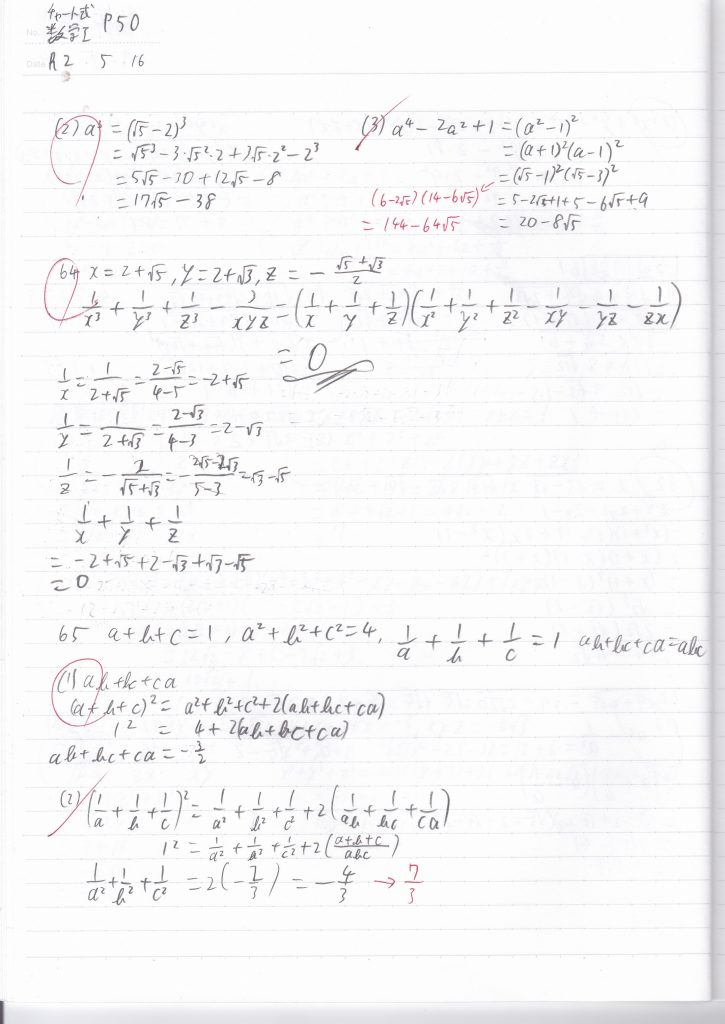 チャート式
数学I P50
No.
Date R2 5 16
(2) a³ = (√5-2)³
= √5³ - 3・√5²・2 + 3√5・2² - 2³
= 5√5 - 30 + 12√5 - 8
= 17√5 - 38
(3) a⁴ - 2a² + 1 = (a²-1)²
= (a+1)²(a-1)²
= (√5-1)²(√5-3)²
(6-2√5)(14-6√5) = 5-2√5+1+5-6√5+9
= 144-64√5 = 20-8√5
64 x = 2+√5, y = 2+√3, z = -(√5+√3)/2
1/x³ + 1/y³ + 1/z³ - 3/xyz = (1/x + 1/y + 1/z)(1/x² + 1/y² + 1/z² - 1/xy - 1/yz - 1/zx)
= 0
1/x = 1/(2+√5) = (2-√5)/(4-5) = -2+√5
1/y = 1/(2+√3) = (2-√3)/(4-3) = 2-√3
1/z = -2/(√5+√3) = -(2√5-2√3)/(5-3) = √3-√5
1/x + 1/y + 1/z
= -2+√5+2-√3+√3-√5
= 0
65 a+b+c=1, a²+b²+c²=4, 1/a + 1/b + 1/c = 1 ab+bc+ca=abc
(1) ab+bc+ca
(a+b+c)² = a²+b²+c²+2(ab+bc+ca)
1² = 4+2(ab+bc+ca)
ab+bc+ca = -3/2
(2) (1/a + 1/b + 1/c)² = 1/a² + 1/b² + 1/c² + 2(1/ab + 1/bc + 1/ca)
1² = 1/a² + 1/b² + 1/c² + 2((a+b+c)/abc)
1/a² + 1/b² + 1/c² = 2(-2/3) = -4/3 → 7/3